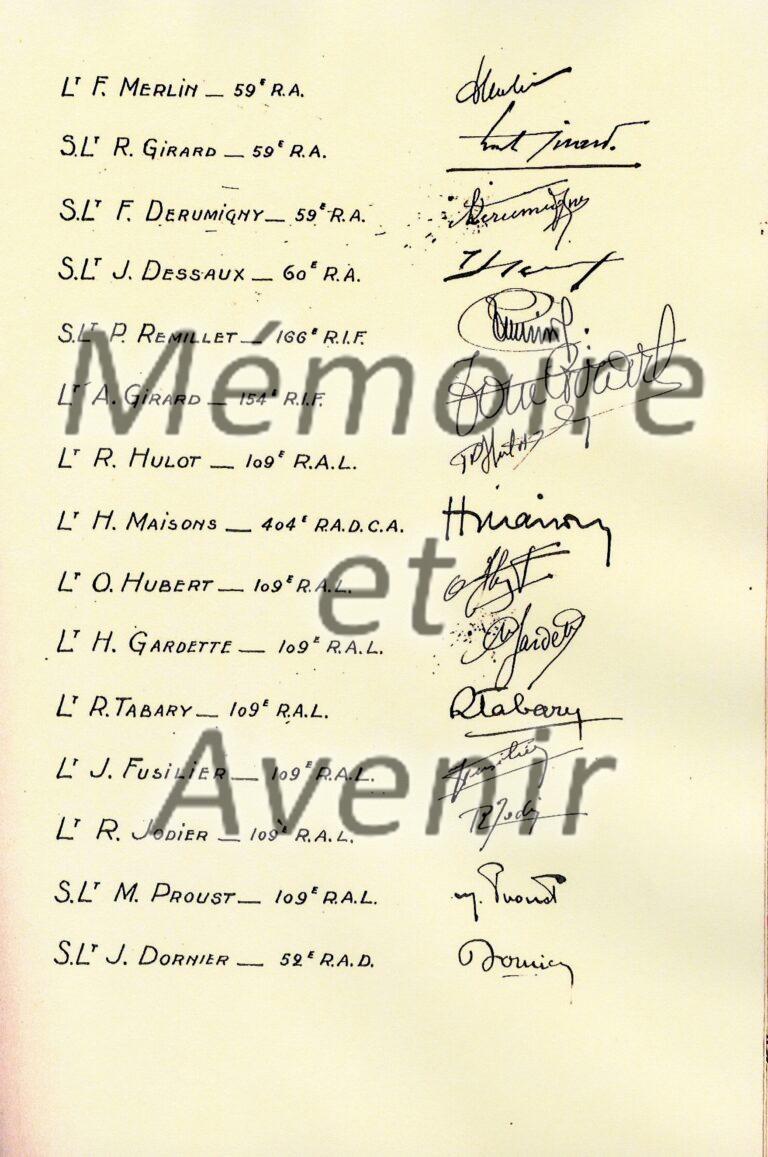 Lᵀ F. MERLIN — 59ᴱ R.A. Merlin
S.Lᵀ R. GIRARD — 59ᴱ R.A. Girard.
S.Lᵀ F. DERUMIGNY — 59ᴱ R.A. Derumigny
S.Lᵀ J. DESSAUX — 60ᴱ R.A.
S.Lᵀ P. REMILLET — 166ᴱ R.I.F.
Lᵀ A. GIRARD — 154ᴱ R.I.F. Girard
Lᵀ R. HULOT — 109ᴱ R.A.L. Hulot
Lᵀ H. MAISONS — 404ᴱ R.A.D.C.A. HMaisons
Lᵀ O. HUBERT — 109ᴱ R.A.L.
Lᵀ H. GARDETTE — 109ᴱ R.A.L. Gardette
Lᵀ R. TABARY — 109ᴱ R.A.L. RTabary
Lᵀ J. FUSILIER — 109ᴱ R.A.L. Fusilier
Lᵀ R. JODIER — 109ᴱ R.A.L.
S.Lᵀ M. PROUST — 109ᴱ R.A.L. M. Proust
S.Lᵀ J. DORNIER — 52ᴱ R.A.D. Dornier
Mémoire
et
Avenir